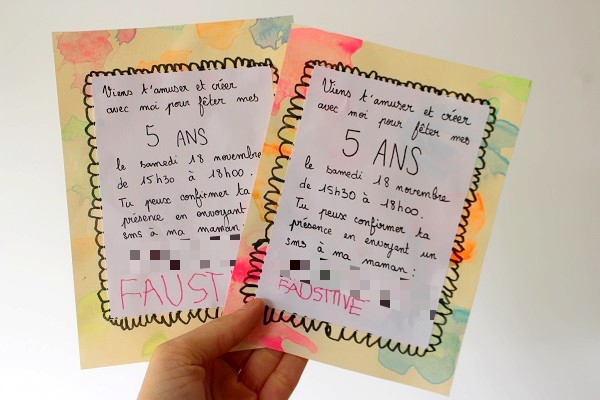 Viens t'amuser et créer
avec moi pour fêter mes
5 ANS
le samedi 18 novembre
de 15h30 à 18h00.
Tu peux confirmer ta
présence en envoyant
sms à ma maman
FAUST
Viens t'amuser et créer
avec moi pour fêter mes
5 ANS
le samedi 18 novembre
de 15h30 à 18h00.
Tu peux confirmer ta
présence en envoyant un
sms à ma maman :
FAUSTIVE